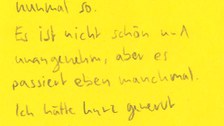 nunmal so.
Es ist nicht schön und
unangenehm, aber es
passiert eben manchmal.
Ich hätte kurz geweint